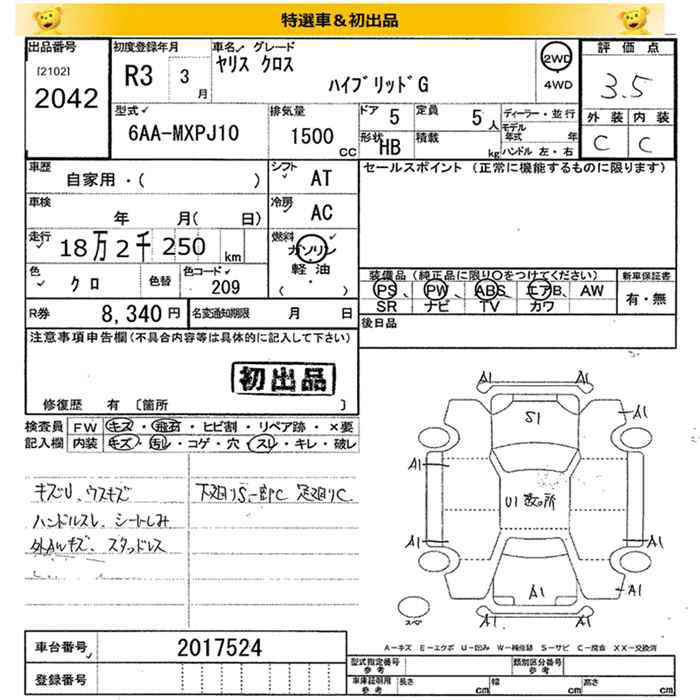 特選車＆初出品
出品番号 初度登録年月 車名 グレード 評価点
[2102] R3 3月 ヤリス クロス 2WD 3.5
2042 ハイブリッドG 4WD
型式 排気量 ドア 5 定員 5人 ディーラー・並行 外装 内装
6AA-MXPJ10 1500cc 形状 HB 積載 kg モデル年式 年 C C
ハンドル 左・右
車歴 シフト AT セールスポイント (正常に機能するものに限ります)
自家用・( )
車検 冷房 AC
年 月( 日)
走行 18万2千250km 燃料 ガソリン
軽油
・( )
色 クロ 色替 色コード 209
装備品 (純正品に限り〇をつけてください) 新車保証書
PS PW ABS エアB. AW 有・無
SR ナビ TV カワ
R券 8,340円 名変通知期限 月 日 後日品
注意事項申告欄(不具合内容等は具体的に記入して下さい)
初出品
修復歴 有 〔箇所 〕
検査員 FW キズ・飛石・ヒビ割・リペア跡・×要
記入欄 内装 キズ・汚レ・コゲ・穴・スレ・キレ・破レ
キズU、ウスキズ 下廻りS一部C 足廻りC.
ハンドルスレ、シートしみ
外AWキズ、スタッドレス
A1 A1
S1 A1
A1 A1
U1
A1 A1
A1 A1
A1 A1
スペ
A－キズ E－エクボ U－凹み W－補修跡 S－サビ C－腐食 XX－交換済
車台番号 2017524
型式指定番号 参考 類別区分番号 参考
登録番号 車庫証明用 参考 長さ cm 幅 cm 高さ cm